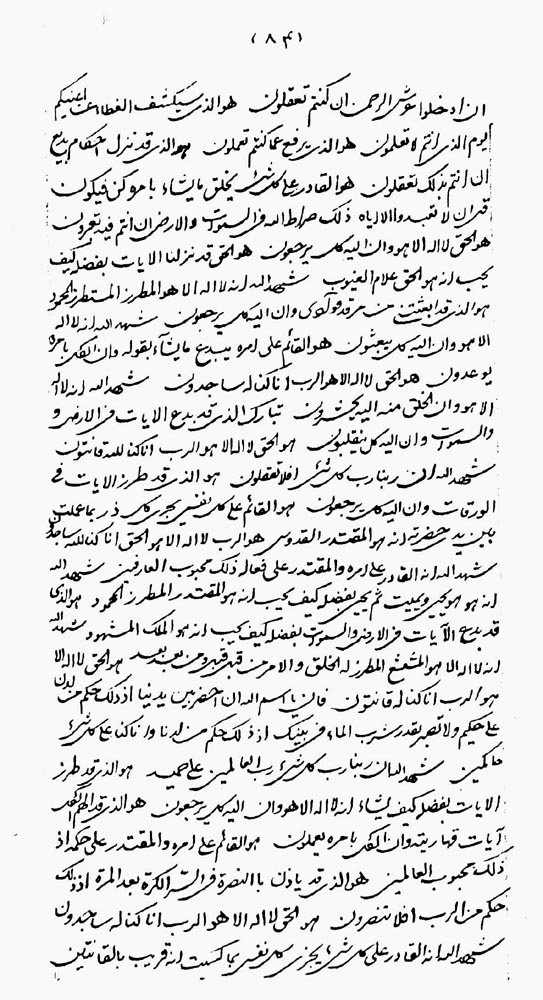 (٨٤)
ان ادخلوا عرش الرحمن ان كنتم تعقلون هو الذي سيكشف الغطاء عن اعينكم
اليوم الذي انتم لا تعلمون هو الذي يرفع عما كنتم تعملون هو الذي قد نزل احكام بديع
ان انتم بذلك تعقلون هو القادر على كل شئ يخلق ما يشاء بامره كن فيكون
قل ان لا تعبدوا الا اياه ذلك صراط الله في السموات والارض ان انتم فيه تعبرون
هو الحق لا اله الا هو وان اليه كل يرجعون هو الحق قد نزلنا الايات بفضله كيف
يحب انه هو الحق علام الغيوب شهد الله انه لا اله الا هو المطرز المتطرز المحمود
هو الذي قد ابعثتني من مرقد فؤادي وان اليه كل يرجعون شهد الله انه لا اله
الا هو وان اليه كل يبعثون هو القائم على امره يبدع ما يشاء بقوله وان الكل بامره
يوعدون هو الحق لا اله الا هو الرب انا كنا له ساجدون شهد الله انه لا اله
الا هو وان الخلق منه اليه يحشرون تبارك الذي قد بدع الايات في الارض و
والسموات وان اليه كل ينقلبون هو الحق لا اله الا هو الرب انا كنا لله قانتون
شهد الله ان ربنا رب كل شئ افلا تعقلون هو الذي قد طرز الايات في
الورقات وان اليه كل يرجعون هو القائم على كل نفس يجزي كل ذر بما عملت
بين يدي حضرته انه هو المقتدر القدوس هو الرب لا اله الا هو الحق انا كنا لله ساجدون
شهد الله انه القادر على امره والمقتدر على فعاله ذلك محبوب العارفين شهد الله
انه هو يحيي ويميت ثم يحيي بفضله كيف يحب انه هو المقتدر المطرز المحمود هو الذي
قد بدع الآيات في الارض والسموات بفضله كيف يحب انه هو الملك المشهود شهد الله
انه لا اله الا هو المتشعشع المطرز له الخلق والامر من قبل قبل ومن بعد بعد هو الحق لا اله الا
هو الرب انا كنا له قانتون فان يا اسم الله ان احضر بين يدينا اذ ذلك حكم من لدن
علي حكيم ولا تصبر بقدر شرب الماء في بيتك اذ ذلك حكم من لدنا وانا كنا على كل شئ
حاكمين شهد الله ان ربنا رب كل شئ رب العالمين علي حميد هو الذي قد طرز
الايات بفضله كيف يشاء انه لا اله الا هو وان اليه كل يرجعون هو الذي قد الهم الكل
آيات قهاريته وان الكل بامره يعملون هو القائم على امره والمقتدر على حكمه اذ
ذلك محبوب العالمين هو الذي قد ياذن بالنصرة في الكرة بعد المرة اذ ذلك
حكم من الرب افلا تنصرون هو الحق لا اله الا هو الرب انا كنا له ساجدون
شهد الله انه القادر على كل شئ يجزي كل نفس بما كسبت انه قريب بالقانتين